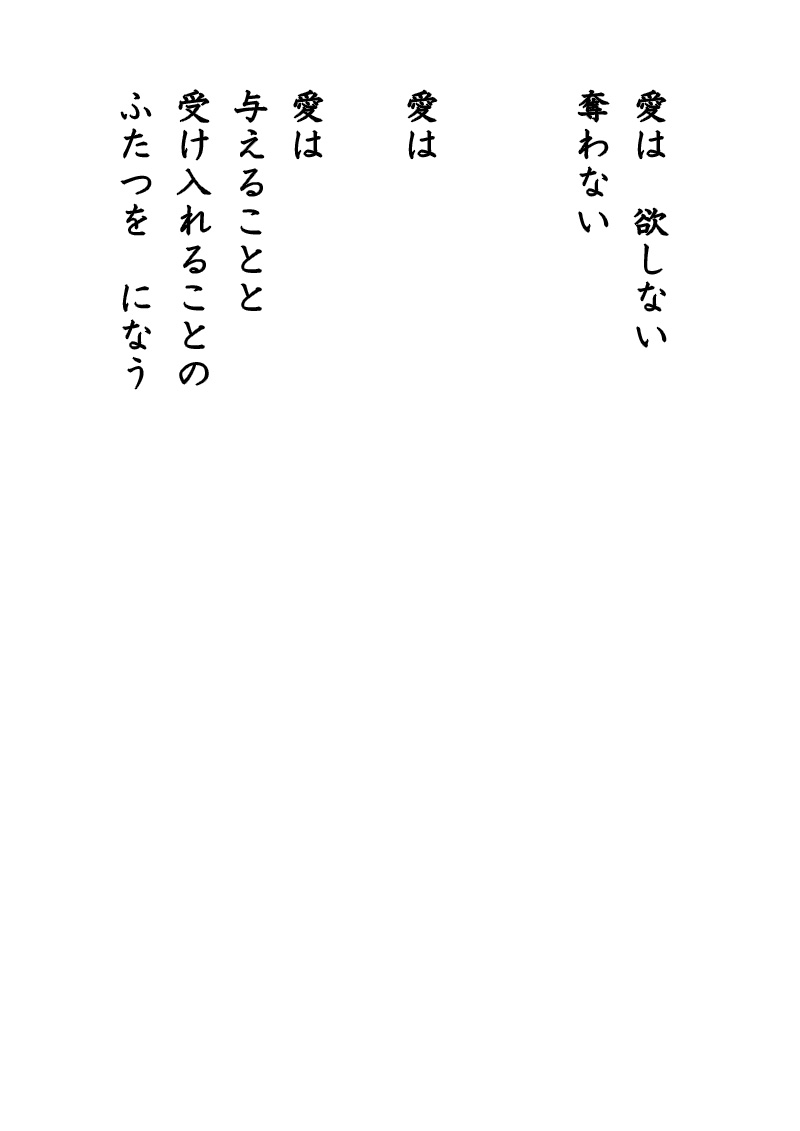 愛は　欲しない
奪わない
愛は
愛は
与えることと
受け入れることの
ふたつを　になう